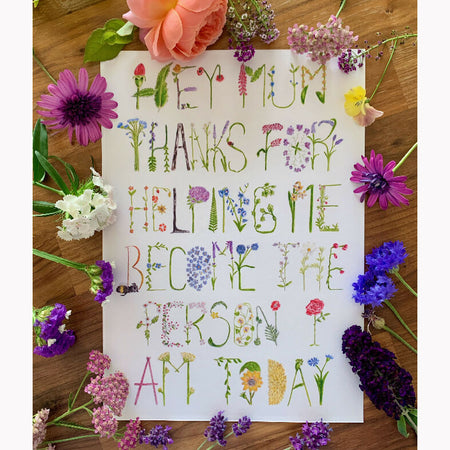 HEY MUM
THANKS FOR
HELPING ME
BECOME THE
PERSON I
AM TODAY